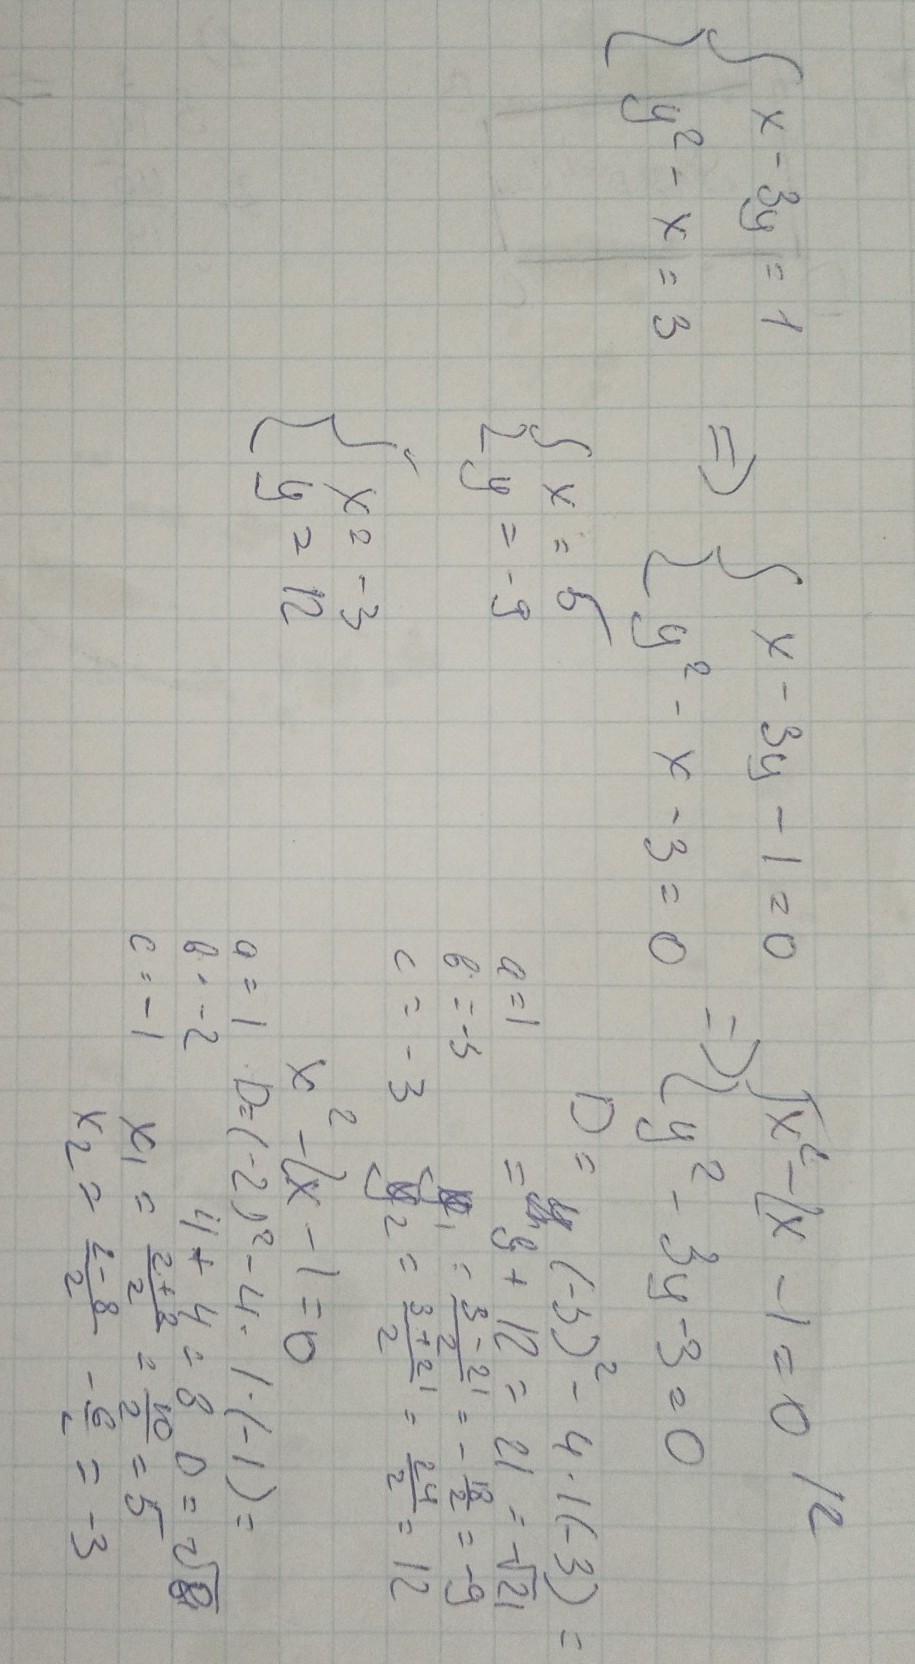 { x - 3y = 1
{ y² - x = 3
=> { x - 3y - 1 = 0
{ y² - x - 3 = 0
=> { x² - 2x - 1 = 0
{ y² - 3y - 3 = 0
{ x = 5
{ y = -9
{ x = -3
{ y = 12
a = 1
b = -3
c = -3
D = (-3)² - 4 · 1(-3) =
= 9 + 12 = 21 = √21
y₁ = (3 - 21)/2 = -18/2 = -9
y₂ = (3 + 21)/2 = 24/2 = 12
x² - 2x - 1 = 0
a = 1
b = -2
c = -1
D = (-2)² - 4 · 1 · (-1) =
4 + 4 = 8 D = √8
x₁ = (2 + 8)/2 = 10/2 = 5
x₂ = (2 - 8)/2 - 6/2 = -3